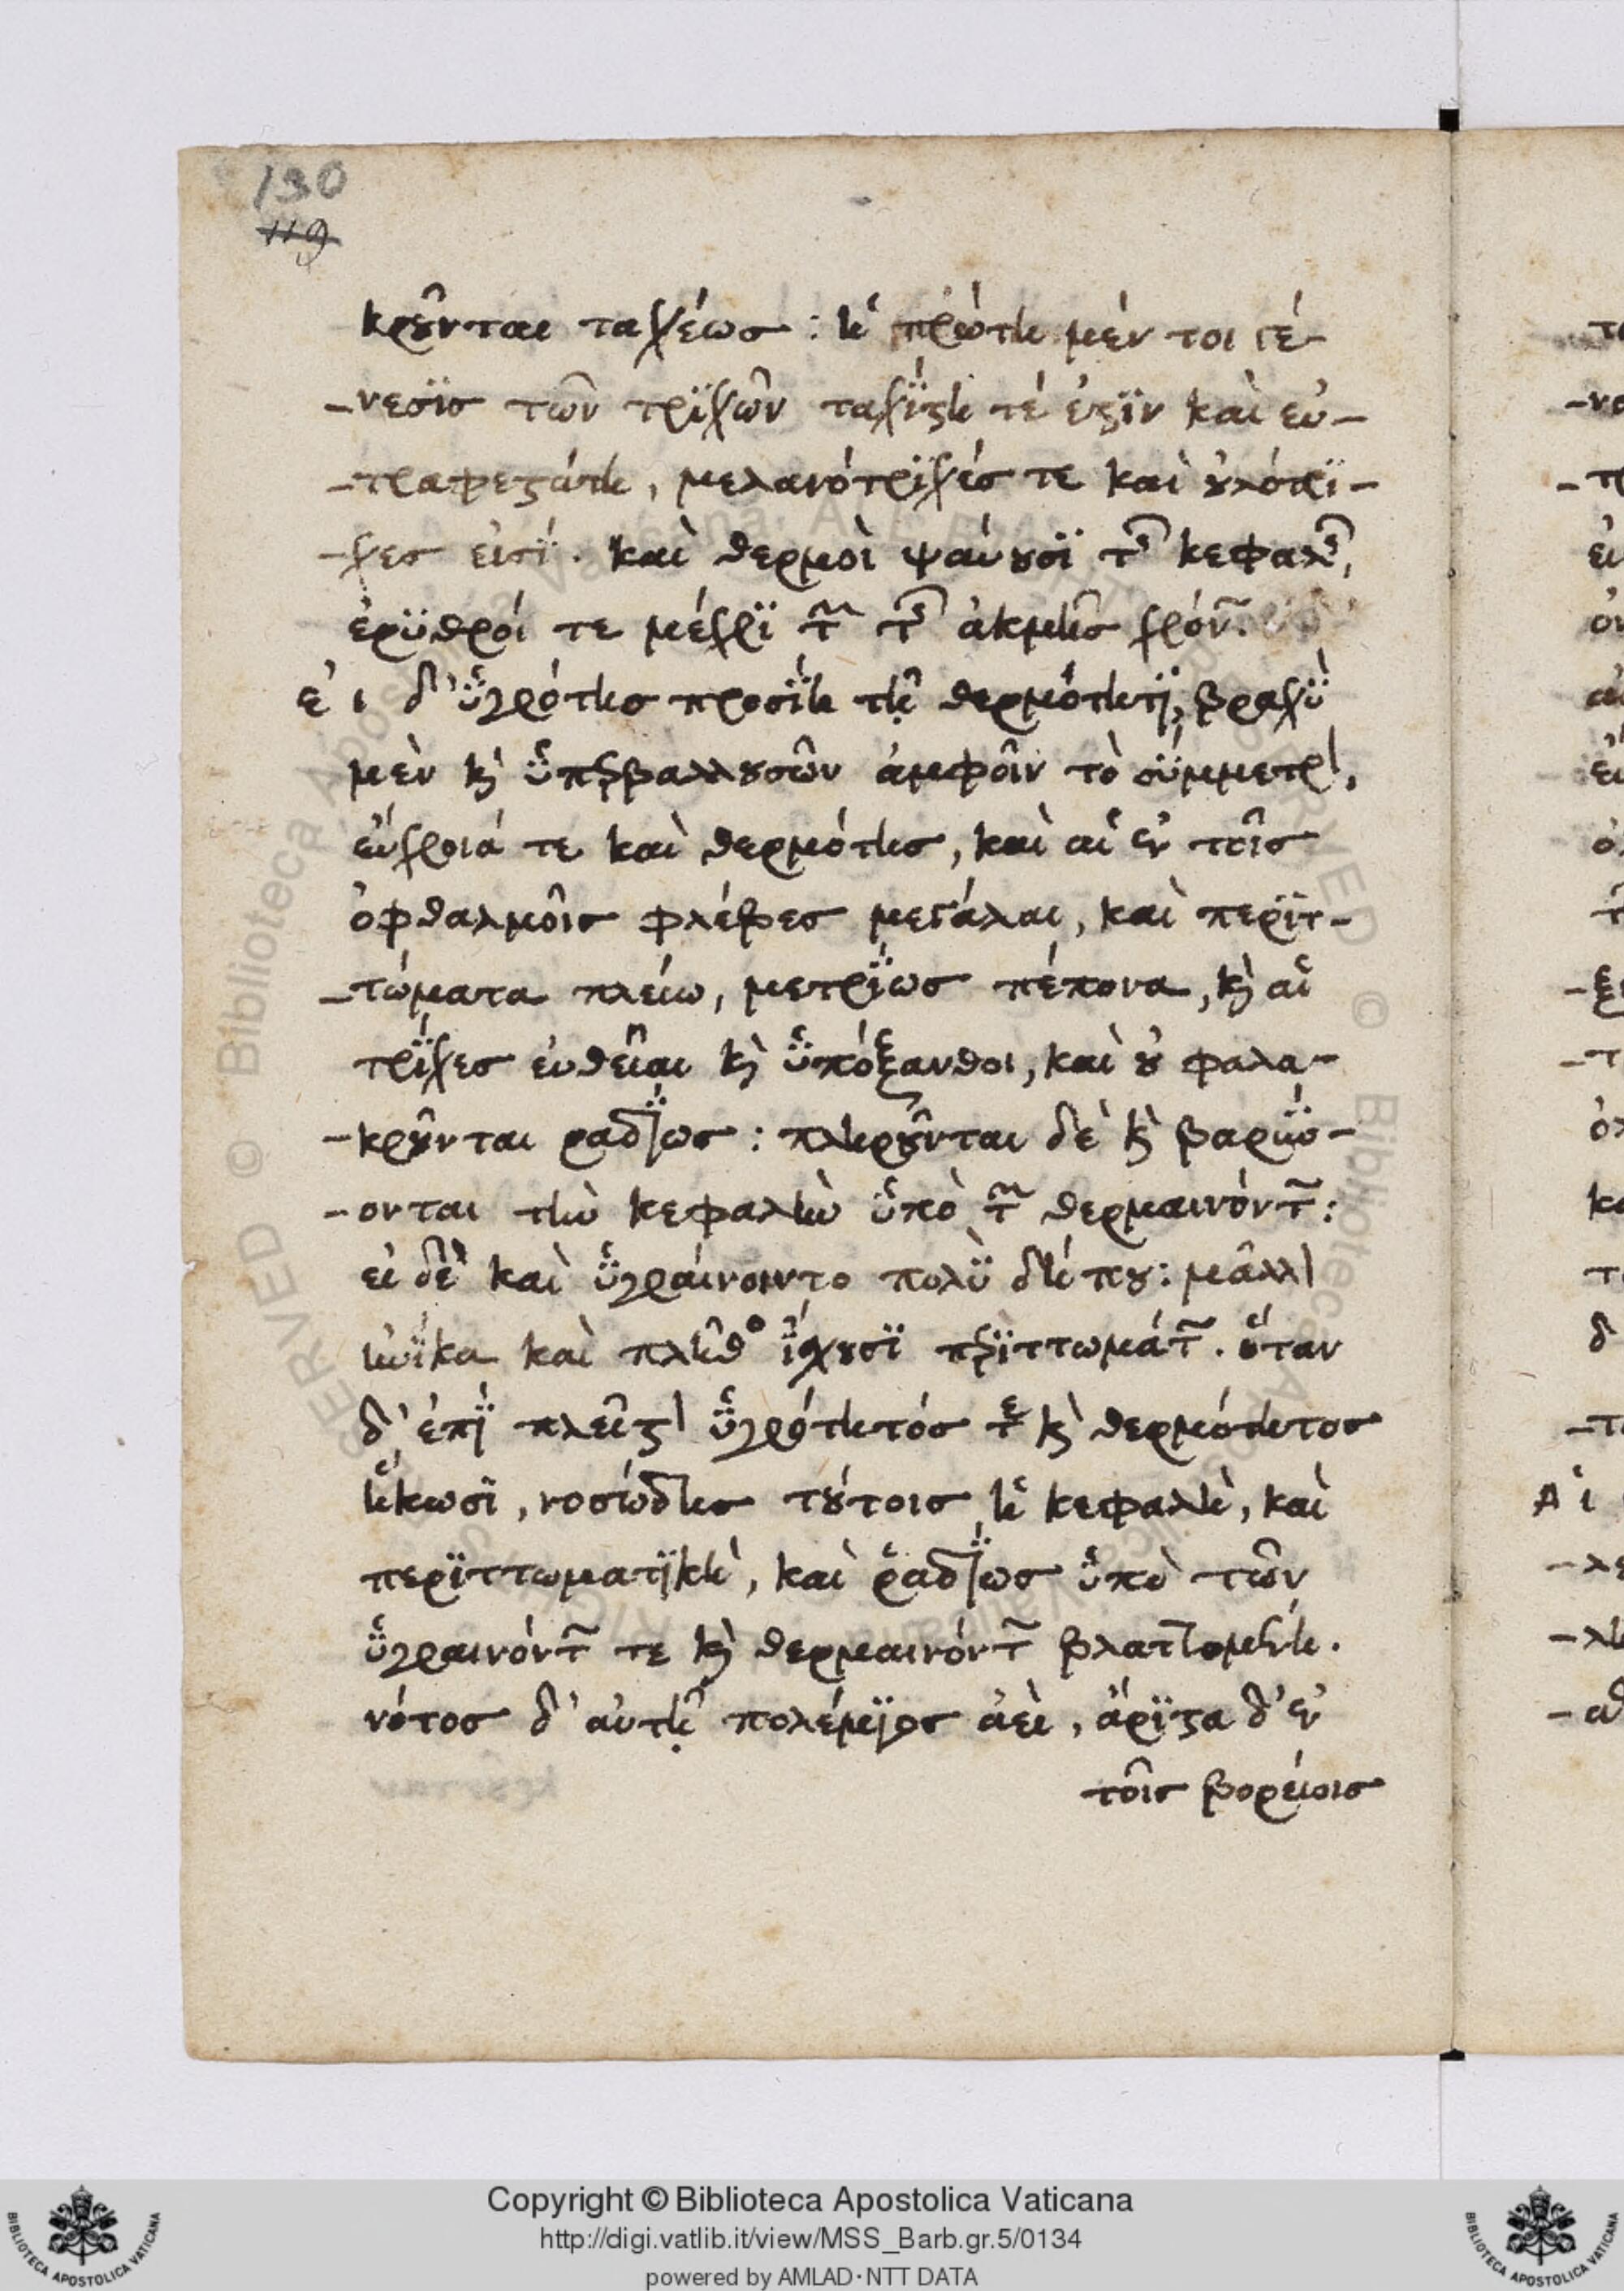 130
119
κροῦνται ταχέως : ἡ πρώτη μέν τοι γέ-
-νεσϊς τῶν τρϊχῶν ταχΐστη τέ ἐστϊν καὶ εὐ-
-τραφεστάτη, μελανότρϊχές τε καὶ οὐλότρϊ-
-χες εἰσΐ. καὶ θερμοὶ ψαύουσϊ τῆς κεφαλῆς,
ἐρϋθροί τε μέχρϊ τῶν τῆς ἀκμῆς χρόνων.
εἰ δ' ὑγρότης προσΐη τῇ θερμότητϊ, βραχὺ
μὲν κὶ ὑπερβαλλουσῶν ἀμφοῖν τὸ σύμμετρον,
εὔχροιά τε καὶ θερμότης, καὶ αἱ ἐν τοῖς
ὀφθαλμοῖς φλέβες μεγάλαι, καὶ περϊτ-
-τώματα πλείω, μετρΐως πέπονα, κὶ αἱ
τρΐχες εὐθεῖαι κὶ ὑπόξανθοι, καὶ οὐ φαλα-
-κροῦνται ραδΐως : πληροῦνται δὲ κὶ βαρύν-
-ονται τὴν κεφαλὴν ὑπὸ τῶν θερμαινόντων :
εἰ δὲ καὶ ὑγραίνοιντο πολὺ δή που : μᾶλλον
ἡνΐκα καὶ πλῆθος ἴσχουσϊ περϊττωμάτων. ὅταν
δ' ἐπῒ πλεῖστον ὑγρότητός τε κὶ θερμότητος
ἥκωσϊ, νοσώδης τούτοις ἡ κεφαλὴ, καὶ
περϊττωματϊκὴ, καὶ ῥαδΐως ὑπὸ τῶν
ὑγραινόντων τε κὶ θερμαινόντων βλαπτομένη.
νότος δ' αὐτῇ πολέμϊος ἀεὶ, ἄρϊστα δ' ἐν
τοῖς βορείοις
Copyright © Biblioteca Apostolica Vaticana
http://digi.vatlib.it/view/MSS_Barb.gr.5/0134
powered by AMLAD·NTT DATA